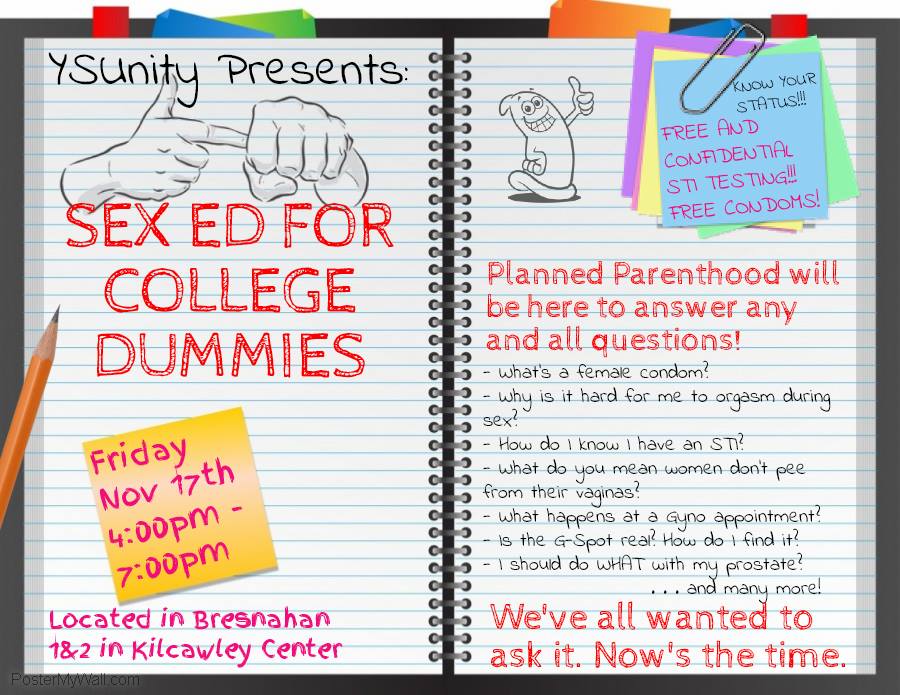 YSUnity Presents:
SEX ED FOR
COLLEGE
DUMMIES
Friday
Nov 17th
4:00pm -
7:00pm
Located in Bresnahan
1&2 in Kilcawley Center
PosterMyWall.com
KNOW YOUR
STATUS!!!
FREE AND
CONFIDENTIAL
STI TESTING!!!
FREE CONDOMS!
Planned Parenthood will
be here to answer any
and all questions!
- What's a female condom?
- Why is it hard for me to orgasm during
sex?
- How do I know I have an STI?
- What do you mean women don't pee
from their vaginas?
- What happens at a Gyno appointment?
- Is the G-Spot real? How do I find it?
- I should do WHAT with my prostate?
. . . and many more!
We've all wanted to
ask it. Now's the time.